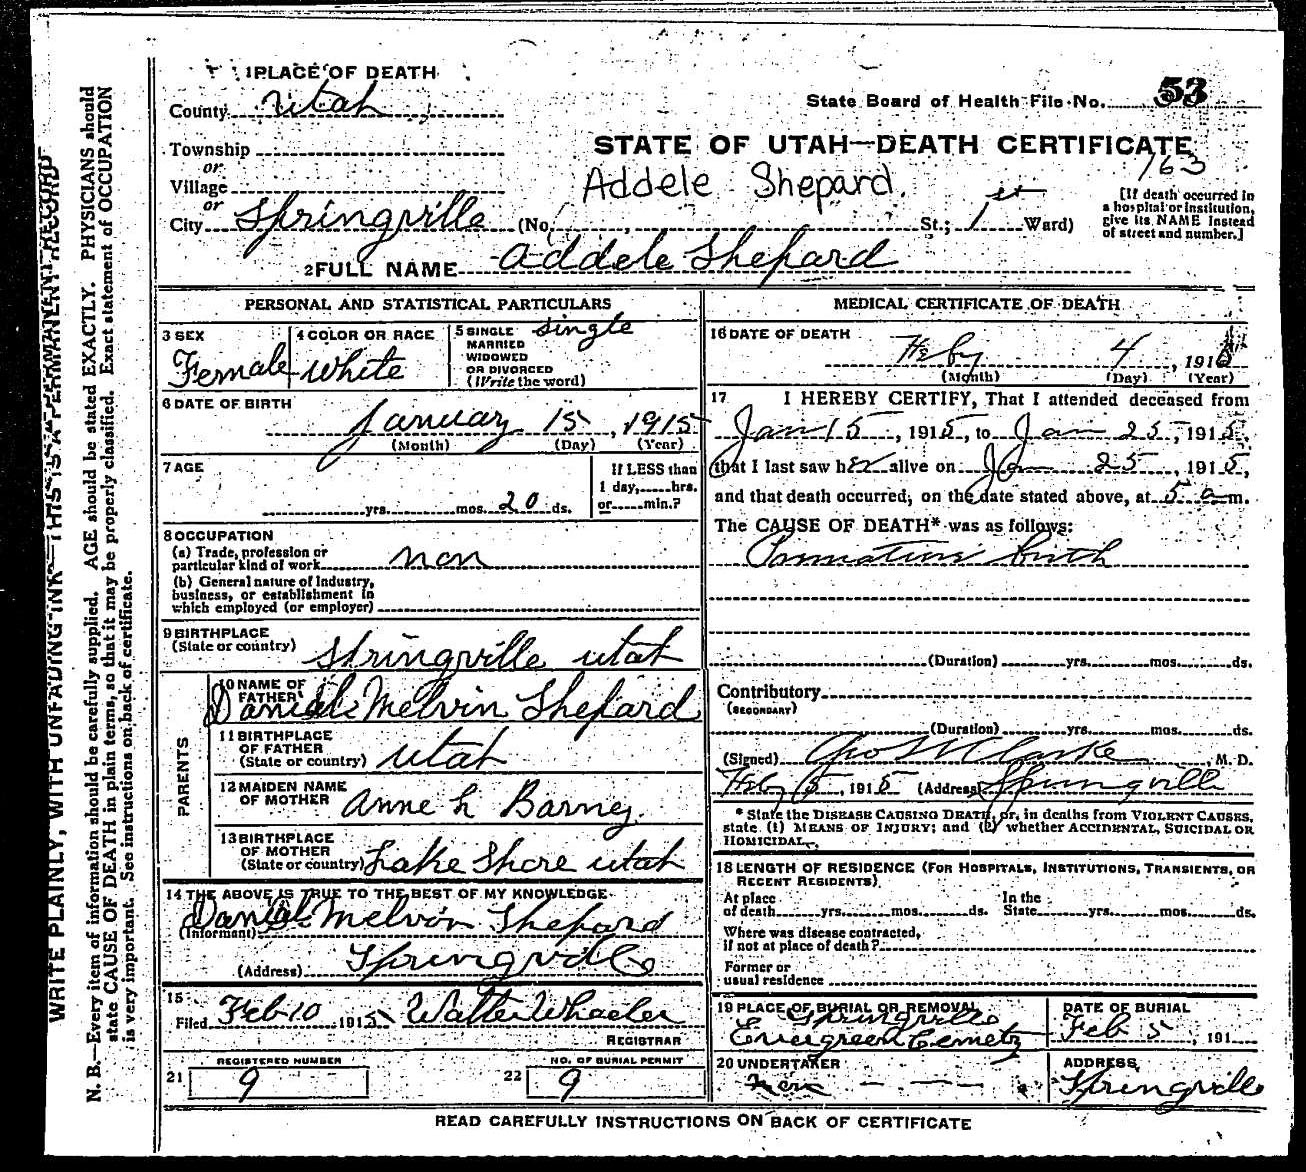 1 PLACE OF DEATH
County Utah
State Board of Health File No. 53
Township
or
Village
or
STATE OF UTAH—DEATH CERTIFICATE
163
Addele Shepard.
City Springville (No. , St.; 1st Ward)
[If death occurred in a hospital or institution, give its NAME instead of street and number.]
2 FULL NAME Addele Shepard
PERSONAL AND STATISTICAL PARTICULARS
3 SEX
Female
4 COLOR OR RACE
White
5 SINGLE MARRIED WIDOWED OR DIVORCED (Write the word)
Single
6 DATE OF BIRTH
January 15, 1915
(Month) (Day) (Year)
7 AGE
yrs. mos. 20 ds.
If LESS than 1 day, hrs. or min.?
8 OCCUPATION
(a) Trade, profession or particular kind of work non
(b) General nature of industry, business, or establishment in which employed (or employer)
9 BIRTHPLACE
(State or country) Springville Utah
PARENTS
10 NAME OF FATHER Daniel Melvin Shepard
11 BIRTHPLACE OF FATHER (State or country) Utah
12 MAIDEN NAME OF MOTHER Anne L Barney
13 BIRTHPLACE OF MOTHER (State or country) Lake Shore Utah
14 THE ABOVE IS TRUE TO THE BEST OF MY KNOWLEDGE
(Informant) Daniel Melvin Shepard
(Address) Springville
15
Filed Feb 10 1915 Walter Wheeler
REGISTRAR
REGISTERED NUMBER
21 9
NO. OF BURIAL PERMIT
22 9
MEDICAL CERTIFICATE OF DEATH
16 DATE OF DEATH
Feby 4, 191
(Month) (Day) (Year)
17 I HEREBY CERTIFY, That I attended deceased from
Jan 15, 1915, to Jan 25, 1915,
that I last saw her alive on Jan 25, 1915,
and that death occurred, on the date stated above, at 5 a m.
The CAUSE OF DEATH* was as follows:
Premature birth
(Duration) yrs. mos. ds.
Contributory
(SECONDARY)
(Duration) yrs. mos. ds.
(Signed) Geo Clarke, M. D.
Feby 5, 1915 (Address) Springville
* State the DISEASE CAUSING DEATH, or, in deaths from VIOLENT CAUSES,
state (1) MEANS OF INJURY; and (2) whether ACCIDENTAL, SUICIDAL OR
HOMICIDAL.
18 LENGTH OF RESIDENCE (FOR HOSPITALS, INSTITUTIONS, TRANSIENTS, OR
RECENT RESIDENTS)
At place of death yrs. mos. ds. In the State yrs. mos. ds.
Where was disease contracted,
if not at place of death?
Former or
usual residence
19 PLACE OF BURIAL OR REMOVAL
Springville
Evergreen Cemetry
DATE OF BURIAL
Feb 5, 191
20 UNDERTAKER
non
ADDRESS
Springville
READ CAREFULLY INSTRUCTIONS ON BACK OF CERTIFICATE
WRITE PLAINLY, WITH UNFADING INK—THIS IS A PERMANENT RECORD
N. B.—Every item of information should be carefully supplied. AGE should be stated EXACTLY. PHYSICIANS should
state CAUSE OF DEATH in plain terms, so that it may be properly classified. Exact statement of OCCUPATION
is very important. See instructions on back of certificate.